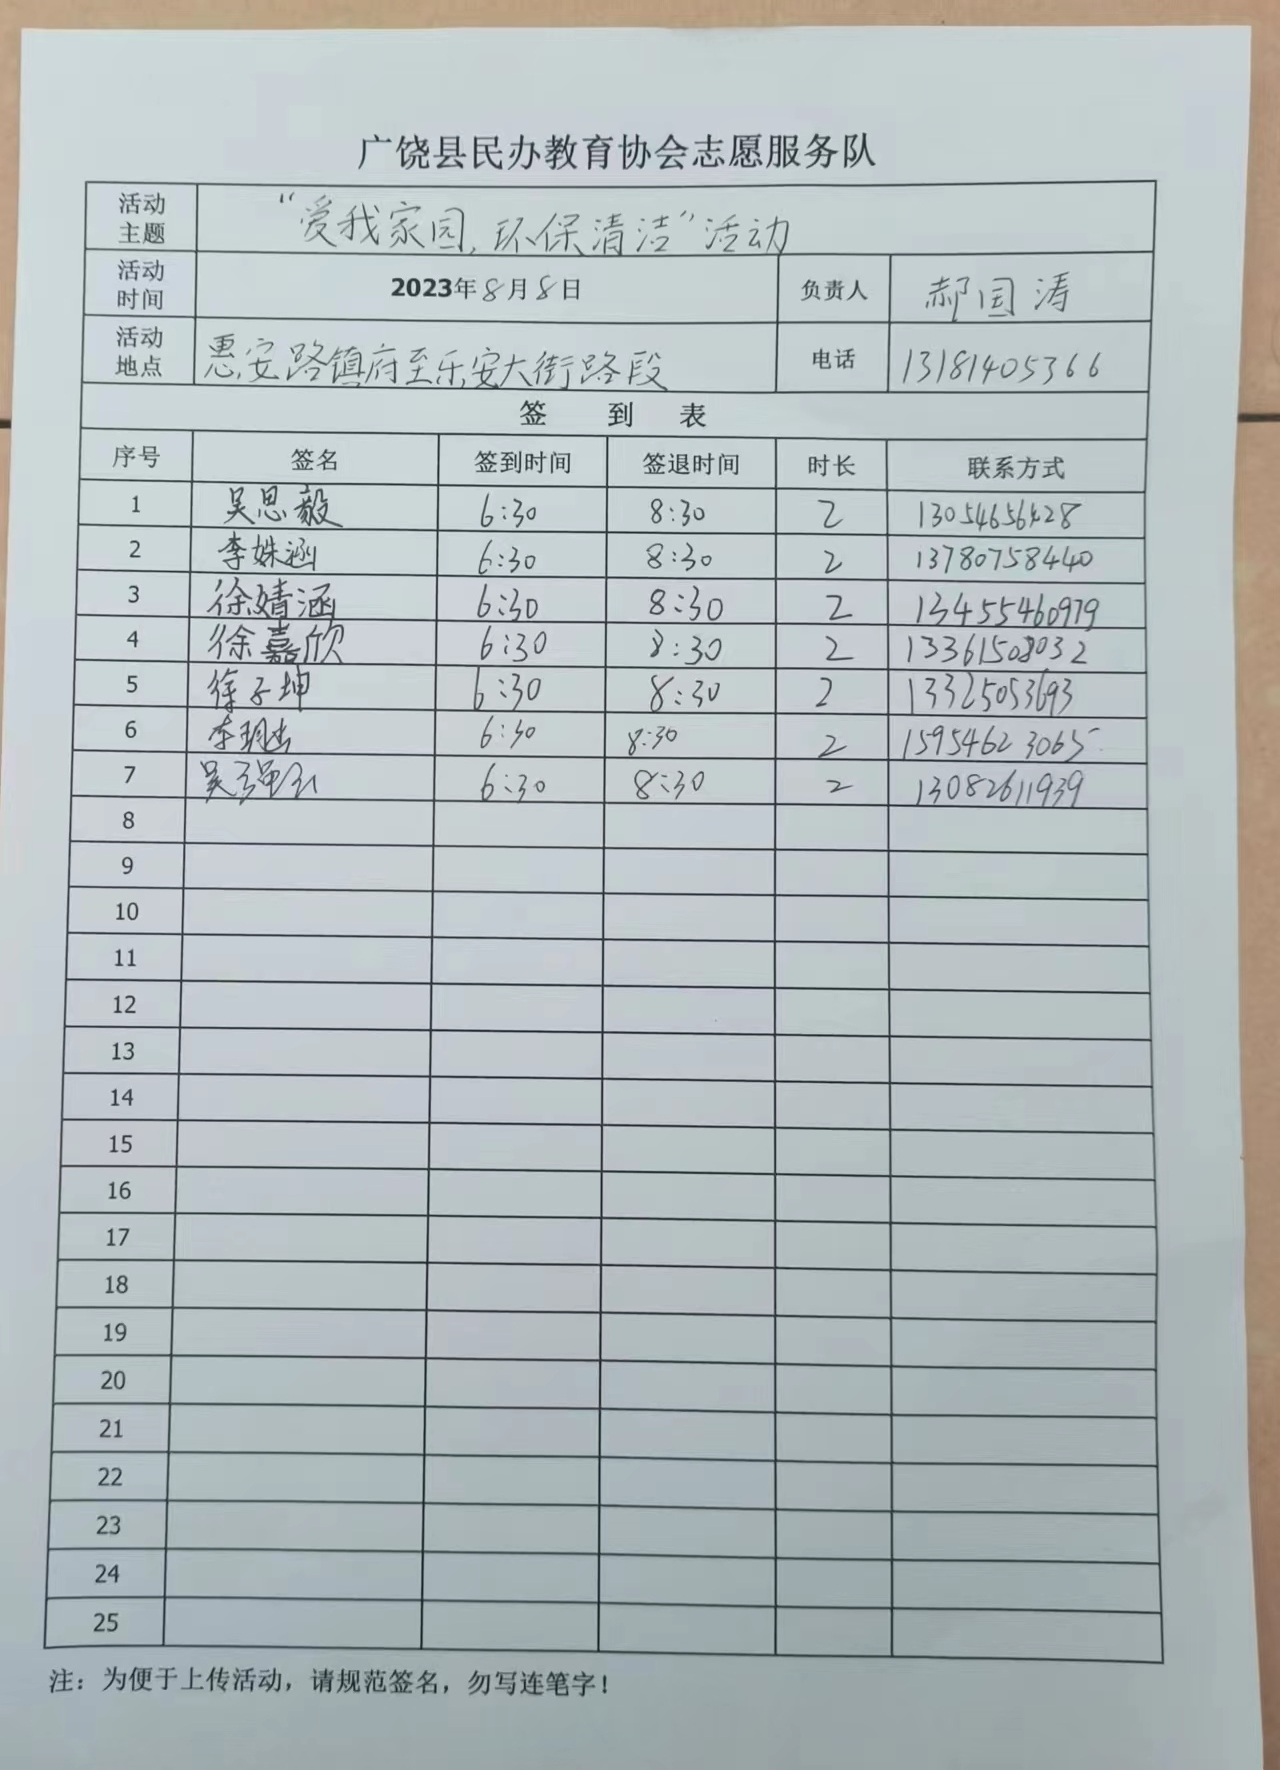 广饶县民办教育协会志愿服务队
活动主题 “爱我家园,环保清洁”活动
活动时间 2023年8月8日 负责人 郝国涛
活动地点 惠安路镇府至乐安大街路段 电话 13181405366
签 到 表
序号 签名 签到时间 签退时间 时长 联系方式
1 吴思毅 6:30 8:30 2 13054656428
2 李姝涵 6:30 8:30 2 13780758440
3 徐婧涵 6:30 8:30 2 13455460979
4 徐嘉欣 6:30 8:30 2 13361508032
5 徐子坤 6:30 8:30 2 13325053693
6 6:30 8:30 2 15954623065
7 吴强 6:30 8:30 2 13082611939
8
9
10
11
12
13
14
15
16
17
18
19
20
21
22
23
24
25
注：为便于上传活动，请规范签名，勿写连笔字！